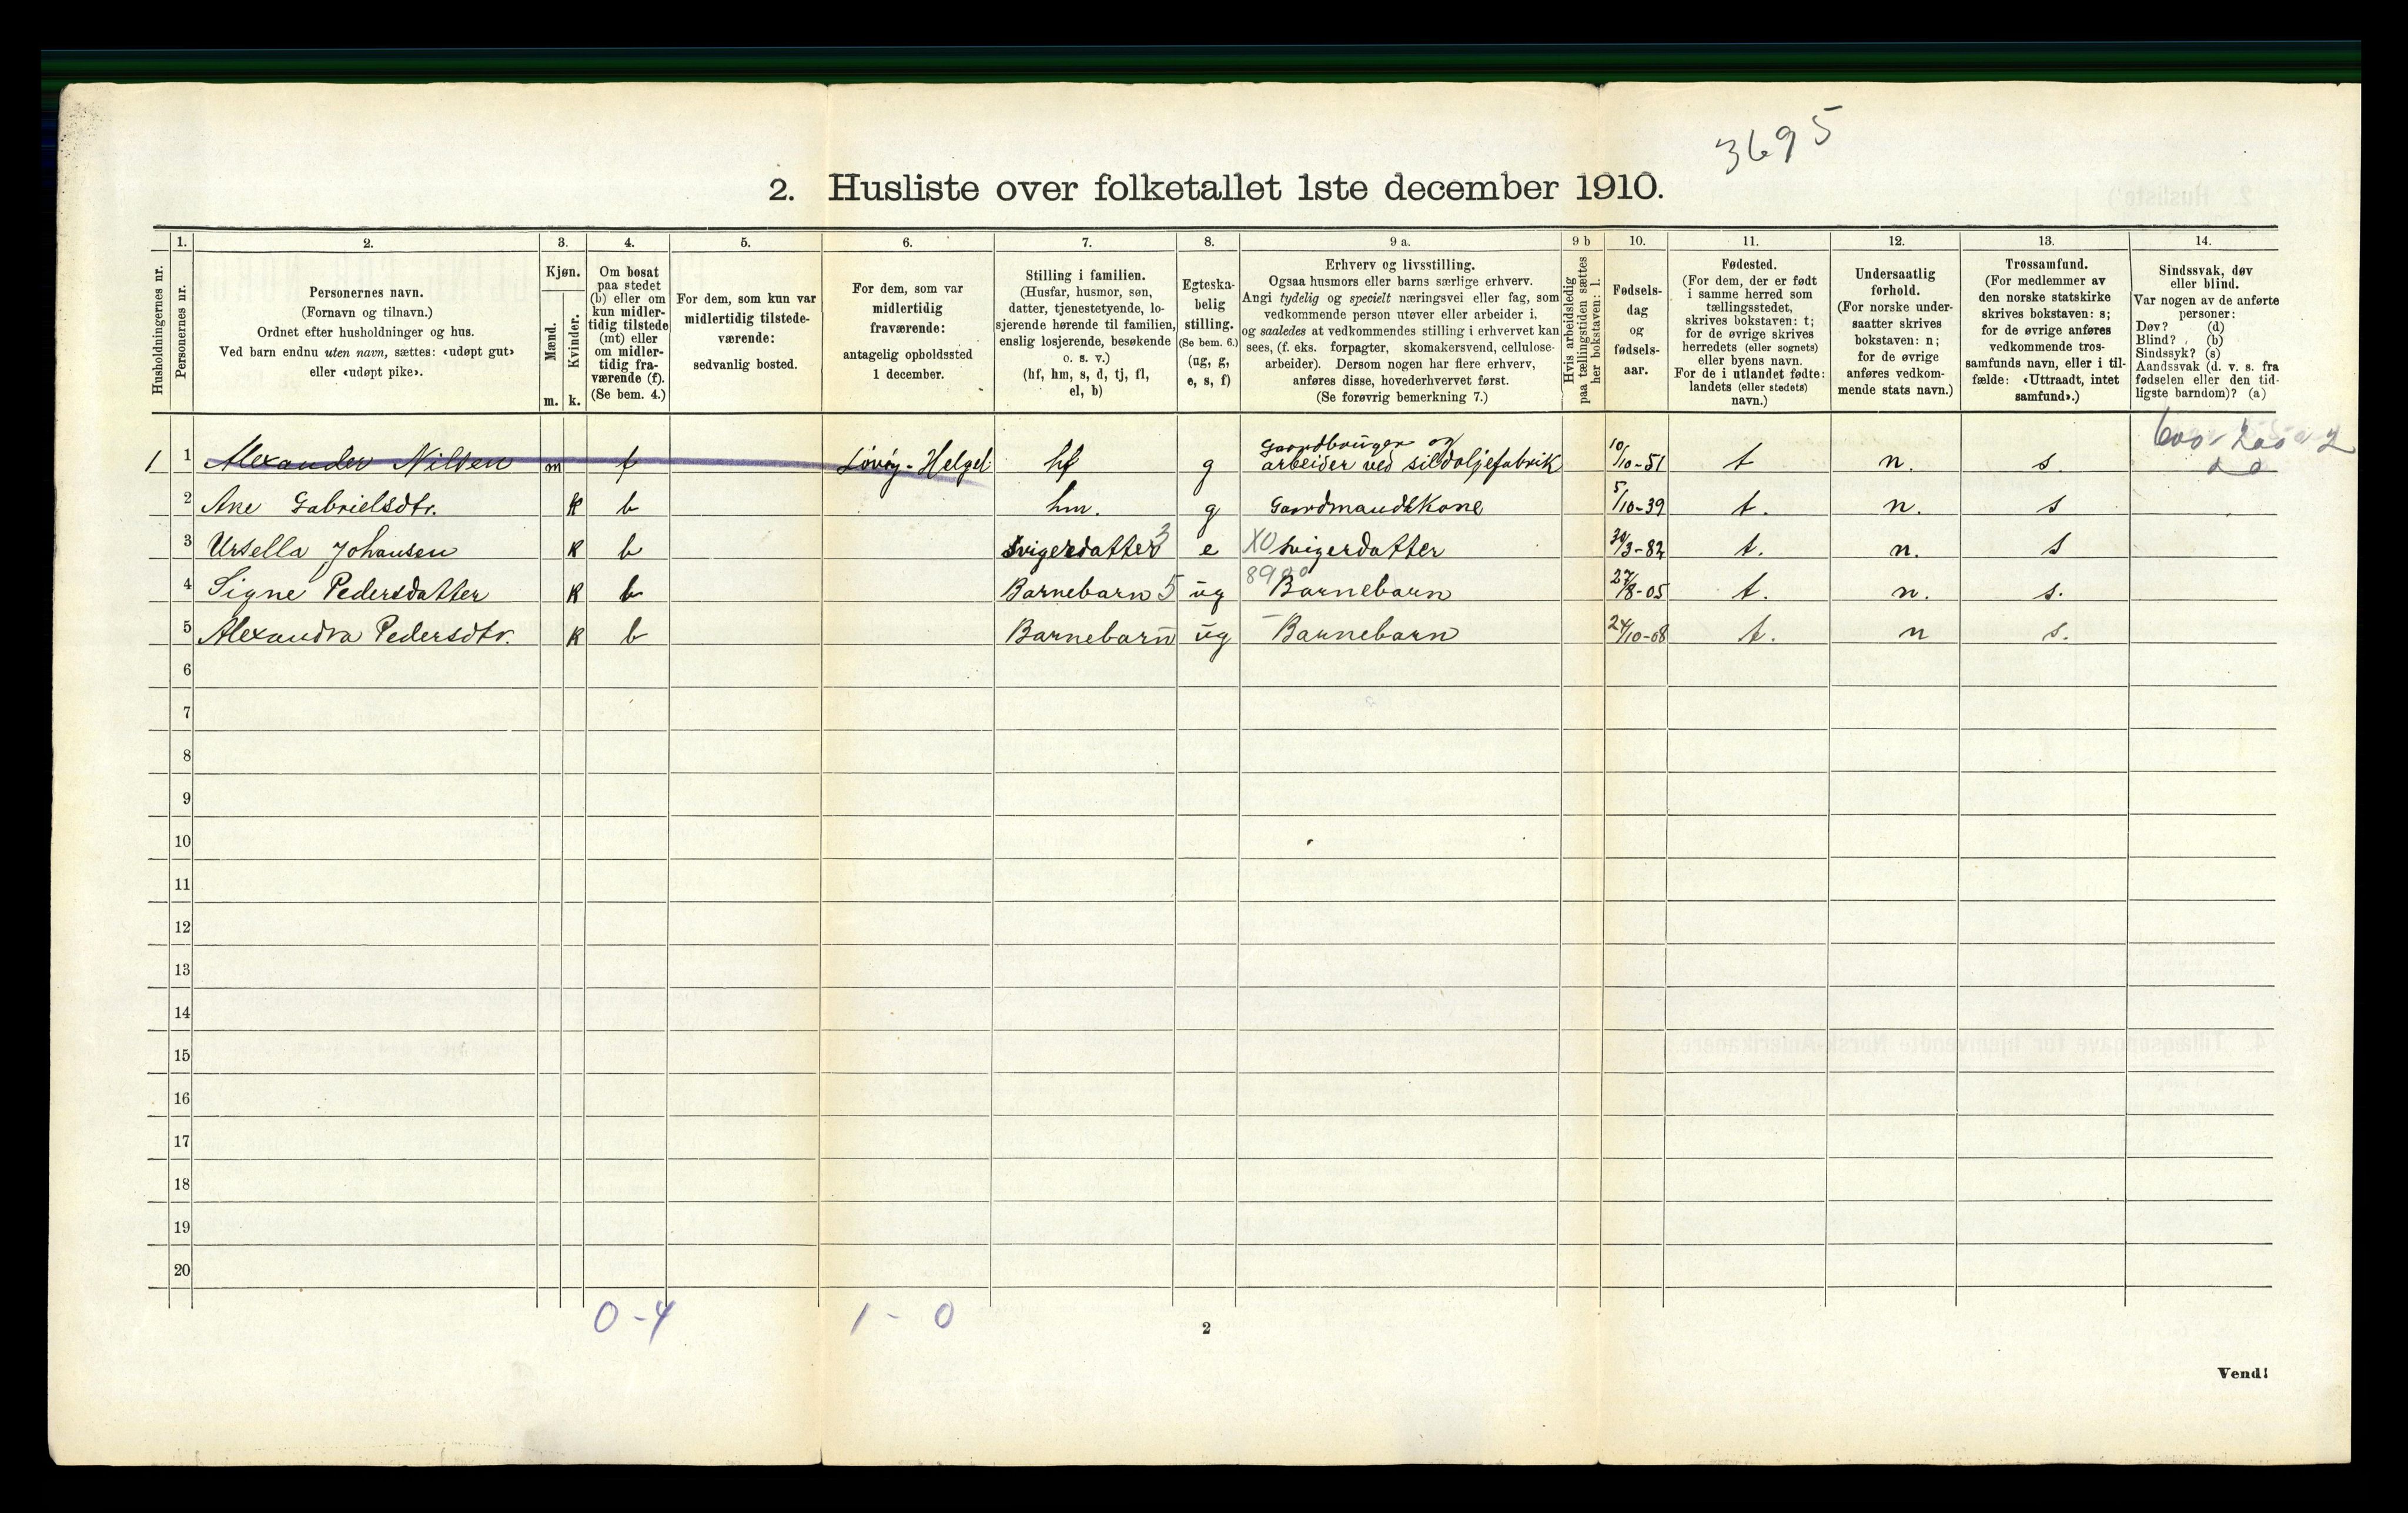 3695
2. Husliste over folketallet 1ste december 1910.
Husholdningernes nr.
1.
Personernes nr.
2.
Personernes navn.
(Fornavn og tilnavn.)
Ordnet efter husholdninger og hus.
Ved barn endnu uten navn, sættes: «udøpt gut»
eller «udøpt pike».
3.
Kjøn.
Mænd.
Kvinder.
m. k.
4.
Om bosat
paa stedet
(b) eller om
kun midler-
tidig tilstede
(mt) eller
om midler-
tidig fra-
værende (f).
(Se bem. 4.)
5.
For dem, som kun var
midlertidig tilstede-
værende:
sedvanlig bosted.
6.
For dem, som var
midlertidig
fraværende:
antagelig opholdssted
1 december.
7.
Stilling i familien.
(Husfar, husmor, søn,
datter, tjenestetyende, lo-
sjerende hørende til familien,
enslig losjerende, besøkende
o. s. v.)
(hf, hm, s, d, tj, fl,
el, b)
8.
Egteska-
belig
stilling.
(Se bem. 6.)
(ug, g,
e, s, f)
9 a.
Erhverv og livsstilling.
Ogsaa husmors eller barns særlige erhverv.
Angi tydelig og specielt næringsvei eller fag, som
vedkommende person utøver eller arbeider i,
og saaledes at vedkommendes stilling i erhvervet kan
sees, (f. eks. forpagter, skomakersvend, cellulose-
arbeider). Dersom nogen har flere erhverv,
anføres disse, hovederhvervet først.
(Se forøvrig bemerkning 7.)
9 b
Hvis arbeidsledig
paa tællingstiden sættes
her bokstaven: l.
10.
Fødsels-
dag
og
fødsels-
aar.
11.
Fødested.
(For dem, der er født
i samme herred som
tællingsstedet,
skrives bokstaven: t;
for de øvrige skrives
herredets (eller sognets)
eller byens navn.
For de i utlandet fødte:
landets (eller stedets)
navn.)
12.
Undersaatlig
forhold.
(For norske under-
saatter skrives
bokstaven: n;
for de øvrige
anføres vedkom-
mende stats navn.)
13.
Trossamfund.
(For medlemmer av
den norske statskirke
skrives bokstaven: s;
for de øvrige anføres
vedkommende tros-
samfunds navn, eller i til-
fælde: «Uttraadt, intet
samfund».)
14.
Sindssvak, døv
eller blind.
Var nogen av de anførte
personer:
Døv? (d)
Blind? (b)
Sindssyk? (s)
Aandssvak (d. v. s. fra
fødselen eller den tid-
ligste barndom)? (a)
1 1 Alexander Nilsen m f Lovøy-Helgel. hf g Gaardbruger og
arbeider ved sildoljefabrik 10/10-51 t n. s.
2 Ane Gabrielsdtr. k b hm. g Gaardmandskone 5/10-39 t. n. s
3 Ursella Johansen k b Svigerdatter 3 e XO Svigerdatter /3-82 t. n. s
4 Signe Pedersdatter k b Barnebarn 5 ug 8900 Barnebarn 27/8-05 t. n. s.
5 Alexandra Pedersdtr. k b Barnebarn ug Barnebarn 24/10-08 t. n s.
6
7
8
9
10
11
12
13
14
15
16
17
18
19
20
0-4 1-0
2
Vend!